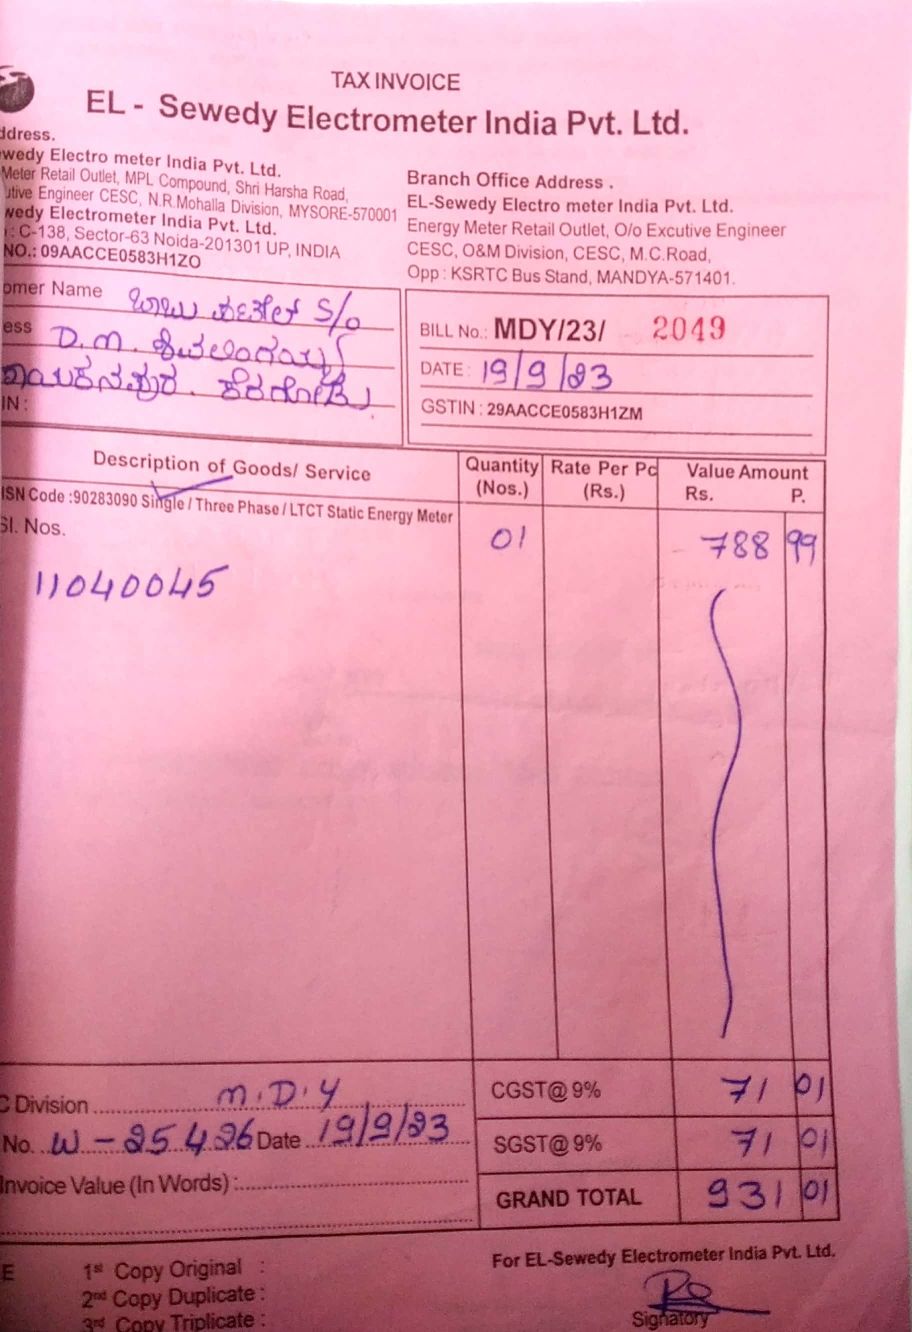 TAX INVOICE
EL - Sewedy Electrometer India Pvt. Ltd.
ddress.
wedy Electro meter India Pvt. Ltd.
Meter Retail Outlet, MPL Compound, Shri Harsha Road,
utive Engineer CESC, N.R.Mohalla Division, MYSORE-570001
wedy Electrometer India Pvt. Ltd.
: C-138, Sector-63 Noida-201301 UP, INDIA
NO.: 09AACCE0583H1ZO
Branch Office Address .
EL-Sewedy Electro meter India Pvt. Ltd.
Energy Meter Retail Outlet, O/o Excutive Engineer
CESC, O&M Division, CESC, M.C.Road,
Opp : KSRTC Bus Stand, MANDYA-571401.
omer Name S/o
ess D.M.
IN :
BILL No.: MDY/23/ 2049
DATE : 19/9/23
GSTIN : 29AACCE0583H1ZM
Description of Goods/ Service Quantity (Nos.) Rate Per Pc (Rs.) Value Amount Rs. P.
ISN Code :90283090 Single / Three Phase / LTCT Static Energy Meter
Sl. Nos. 01 788 99
11040045
C Division M.D.Y CGST@ 9% 71 01
No. W-25426 Date 19/9/23 SGST@ 9% 71 01
Invoice Value (In Words) : GRAND TOTAL 931 01
For EL-Sewedy Electrometer India Pvt. Ltd.
E 1st Copy Original :
2nd Copy Duplicate :
3rd Copy Triplicate : Signatory